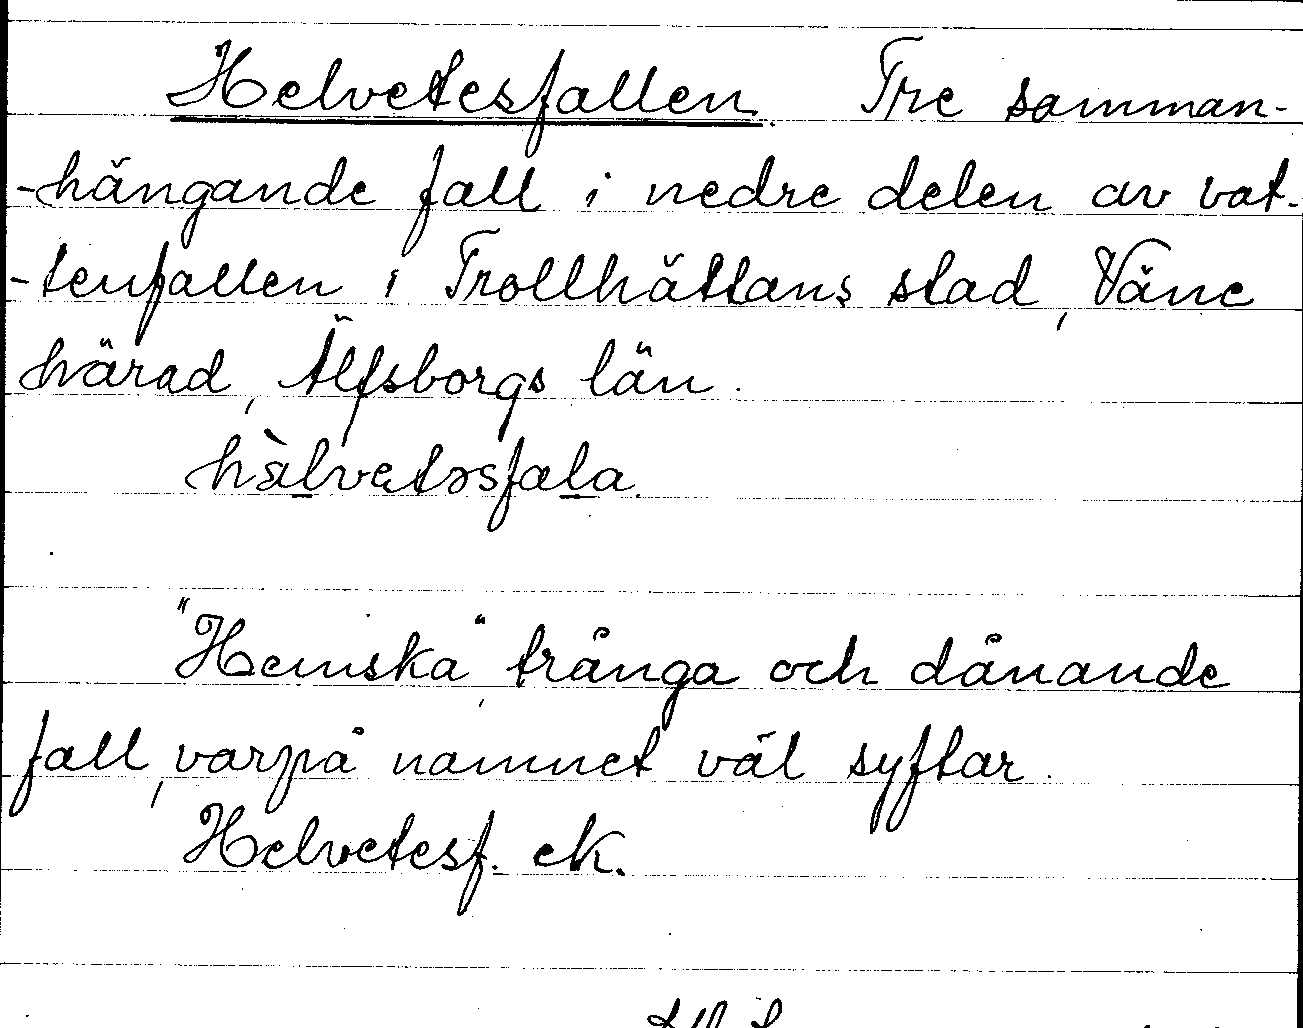 Helvetesfallen. Tre samman-
-hängande fall i nedre delen av vat-
-tenfallen i Trollhättans stad, Väne
härad, Älfsborgs län.
hä̀lvetəsfala.
"Hemska", trånga och dånande
fall, varpå namnet väl syftar.
Helvetesf. ek.